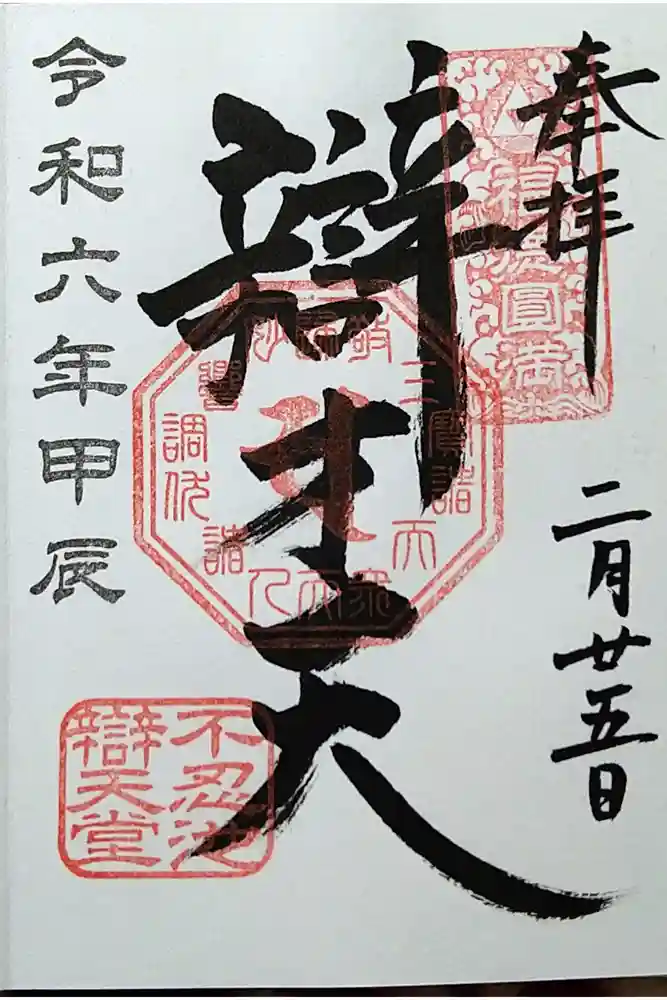 奉拝
福徳圓満
二月廿五日
辯才天
令和六年甲辰
不忍池
辯天堂